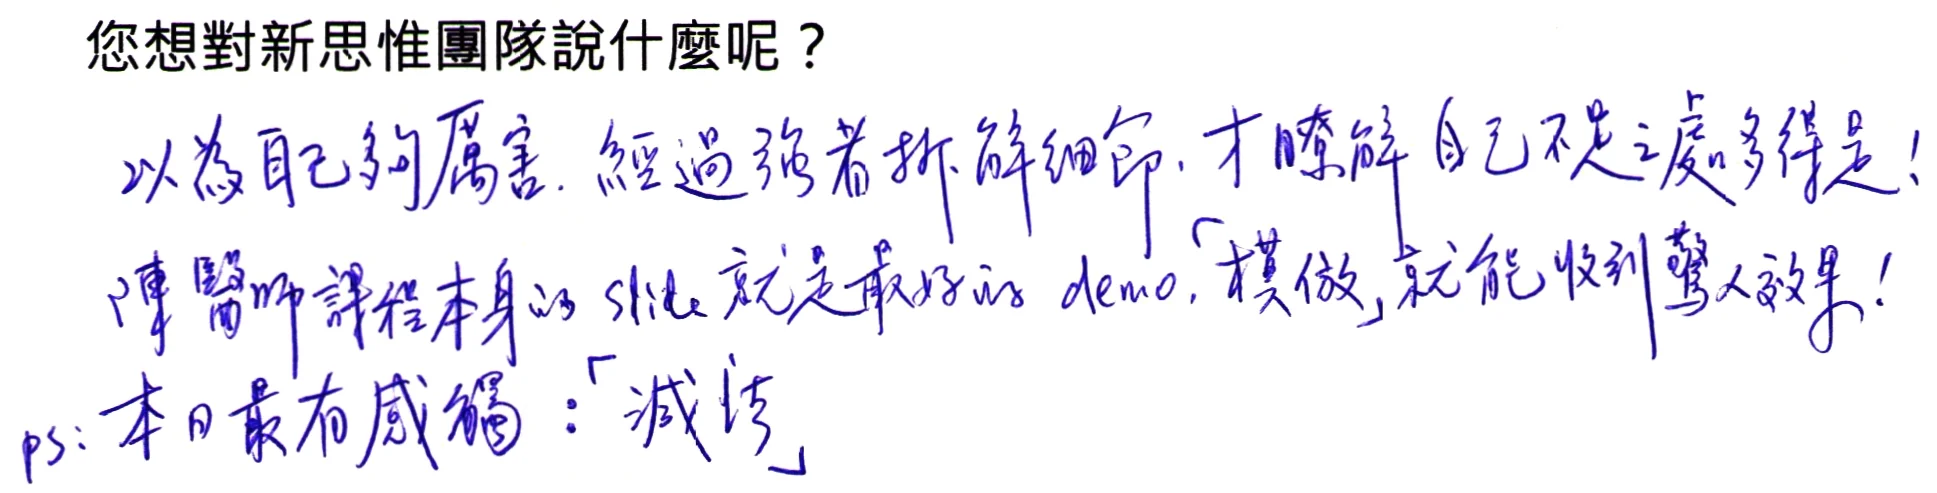 您想對新思惟團隊說什麼呢？
以為自己夠厲害.經過強者拆解細節,才瞭解自己不足之處多得是!
陳醫師課程本身的slide就是最好的demo,「模倣」就能收到驚人效果!
ps:本日最有感觸:「減法」